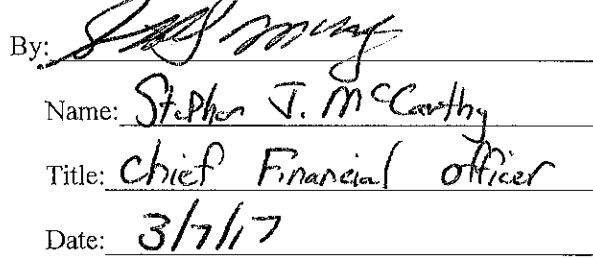 By:
Name: Stephen J. McCarthy
Title: Chief Financial Officer
Date: 3/7/17